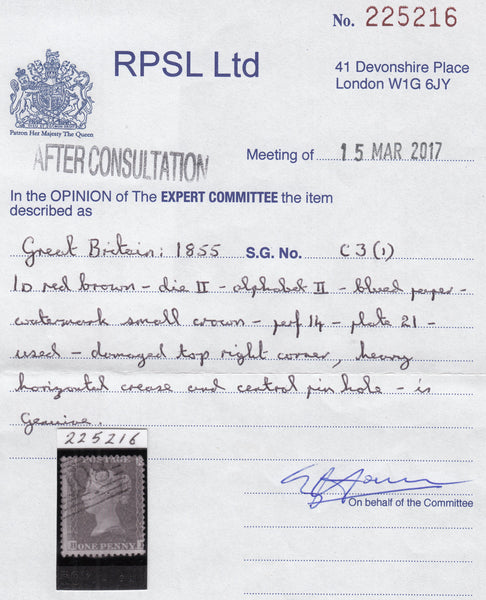 No. 225216
RPSL Ltd
41 Devonshire Place
London W1G 6JY
Patron Her Majesty The Queen
AFTER CONSULTATION
Meeting of 15 MAR 2017
In the OPINION of The EXPERT COMMITTEE the item
described as
Great Britain: 1855 S.G. No. C3(1)
1D red brown - die II - alphabet II - blued paper -
watermark small crown - perf 14 - plate 21 -
used - damaged top right corner, heavy
horizontal crease and central pin hole - is
genuine.
225216
ONE PENNY
On behalf of the Committee